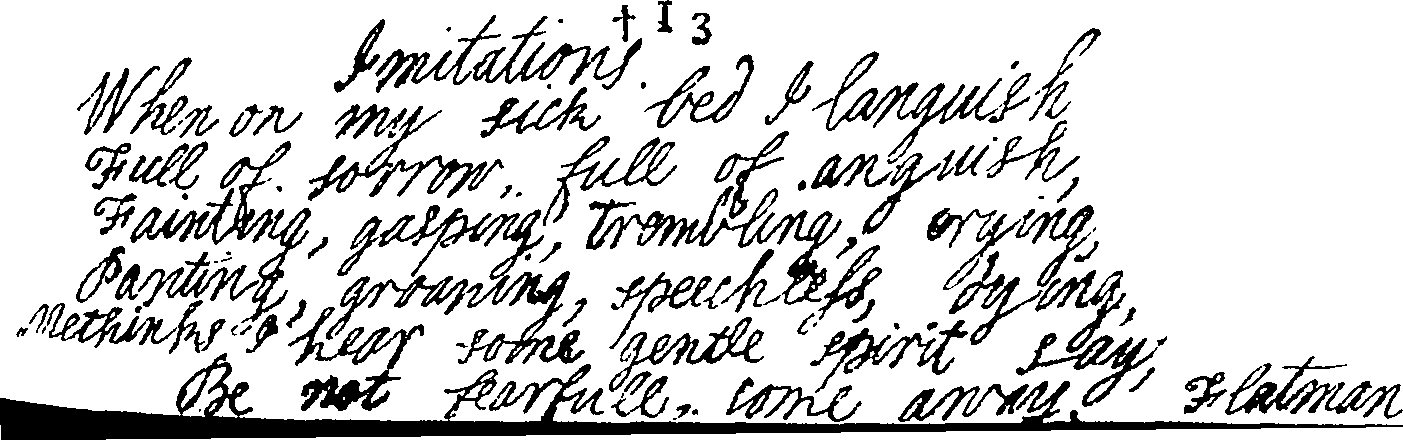 † I 3
Imitations.
When on my sick bed I languish
Full of sorrow, full of anguish,
Fainting, gasping, trembling, crying,
Panting, groaning, speechless, dying,
Methinks I hear some gentle spirit say,
Be not fearfull, come away. Flatman